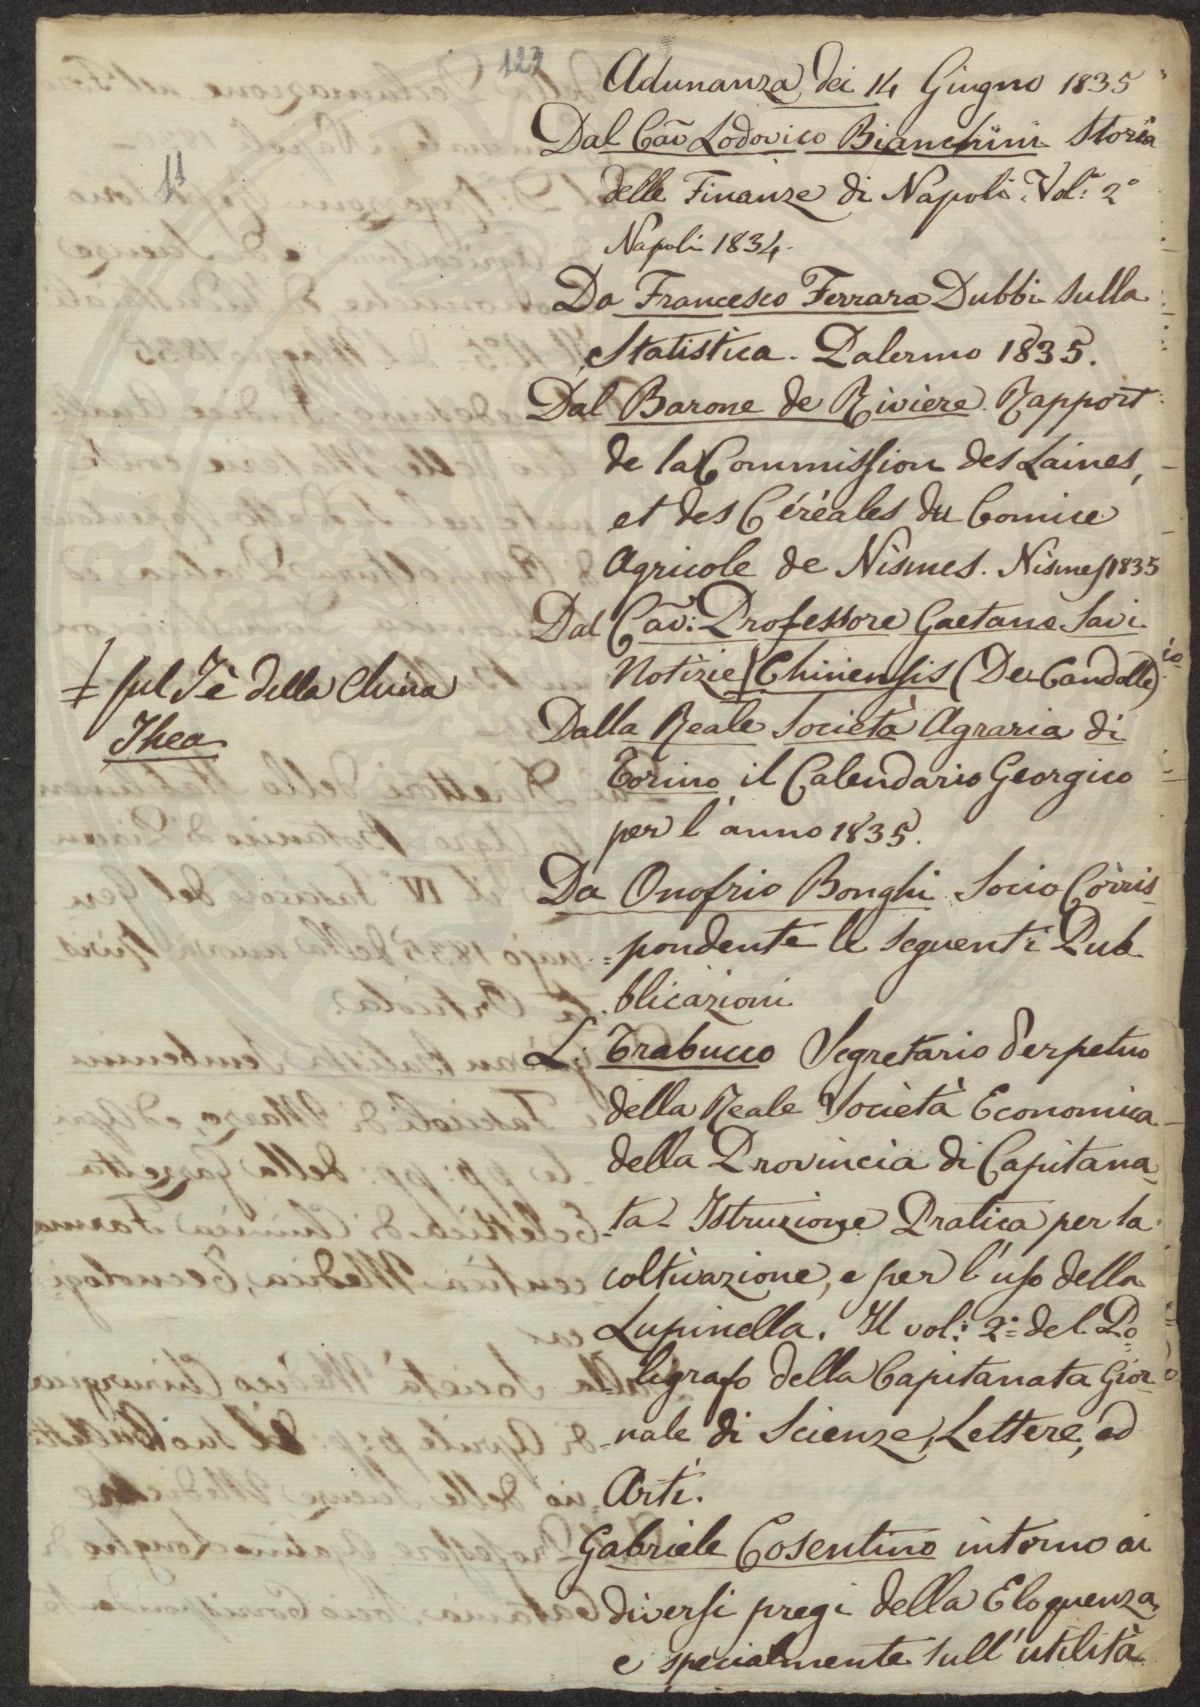 123
11
Adunanza dei 14 Giugno 1835
Dal Cav. Lodovico Bianchini Storia
delle Finanze di Napoli. Vol: 2°
Napoli 1834.
Da Francesco Ferrara Dubbi sulla
Statistica. Palermo 1835.
Dal Barone de Riviére Rapport
de la Commission des Laines,
et des Céréales du Comice
Agricole de Nismes. Nismes 1835
Dal Cav: Professore Gaetano Savi
Notizie Chinensis (De Candolle)
sul Tè della China
Thea
Dalla Reale Società Agraria di
Torino il Calendario Georgico
per l'anno 1835.
Da Onofrio Bonghi Socio Corris
=pondente le seguenti Pub
blicazioni
L: Trabucco Segretario Perpetuo
della Reale Società Economica
della Provincia di Capitana
-ta - Istruzione Pratica per la
coltivazione, e per l'uso della
Lupinella. Il vol: 2° del Po
-ligrafo della Capitanata Gior
-nale di Scienze, Lettere, ed
Arti.
Gabriele Cosentino intorno ai
diversi pregi della Eloquenza,
e specialmente sull'utilità